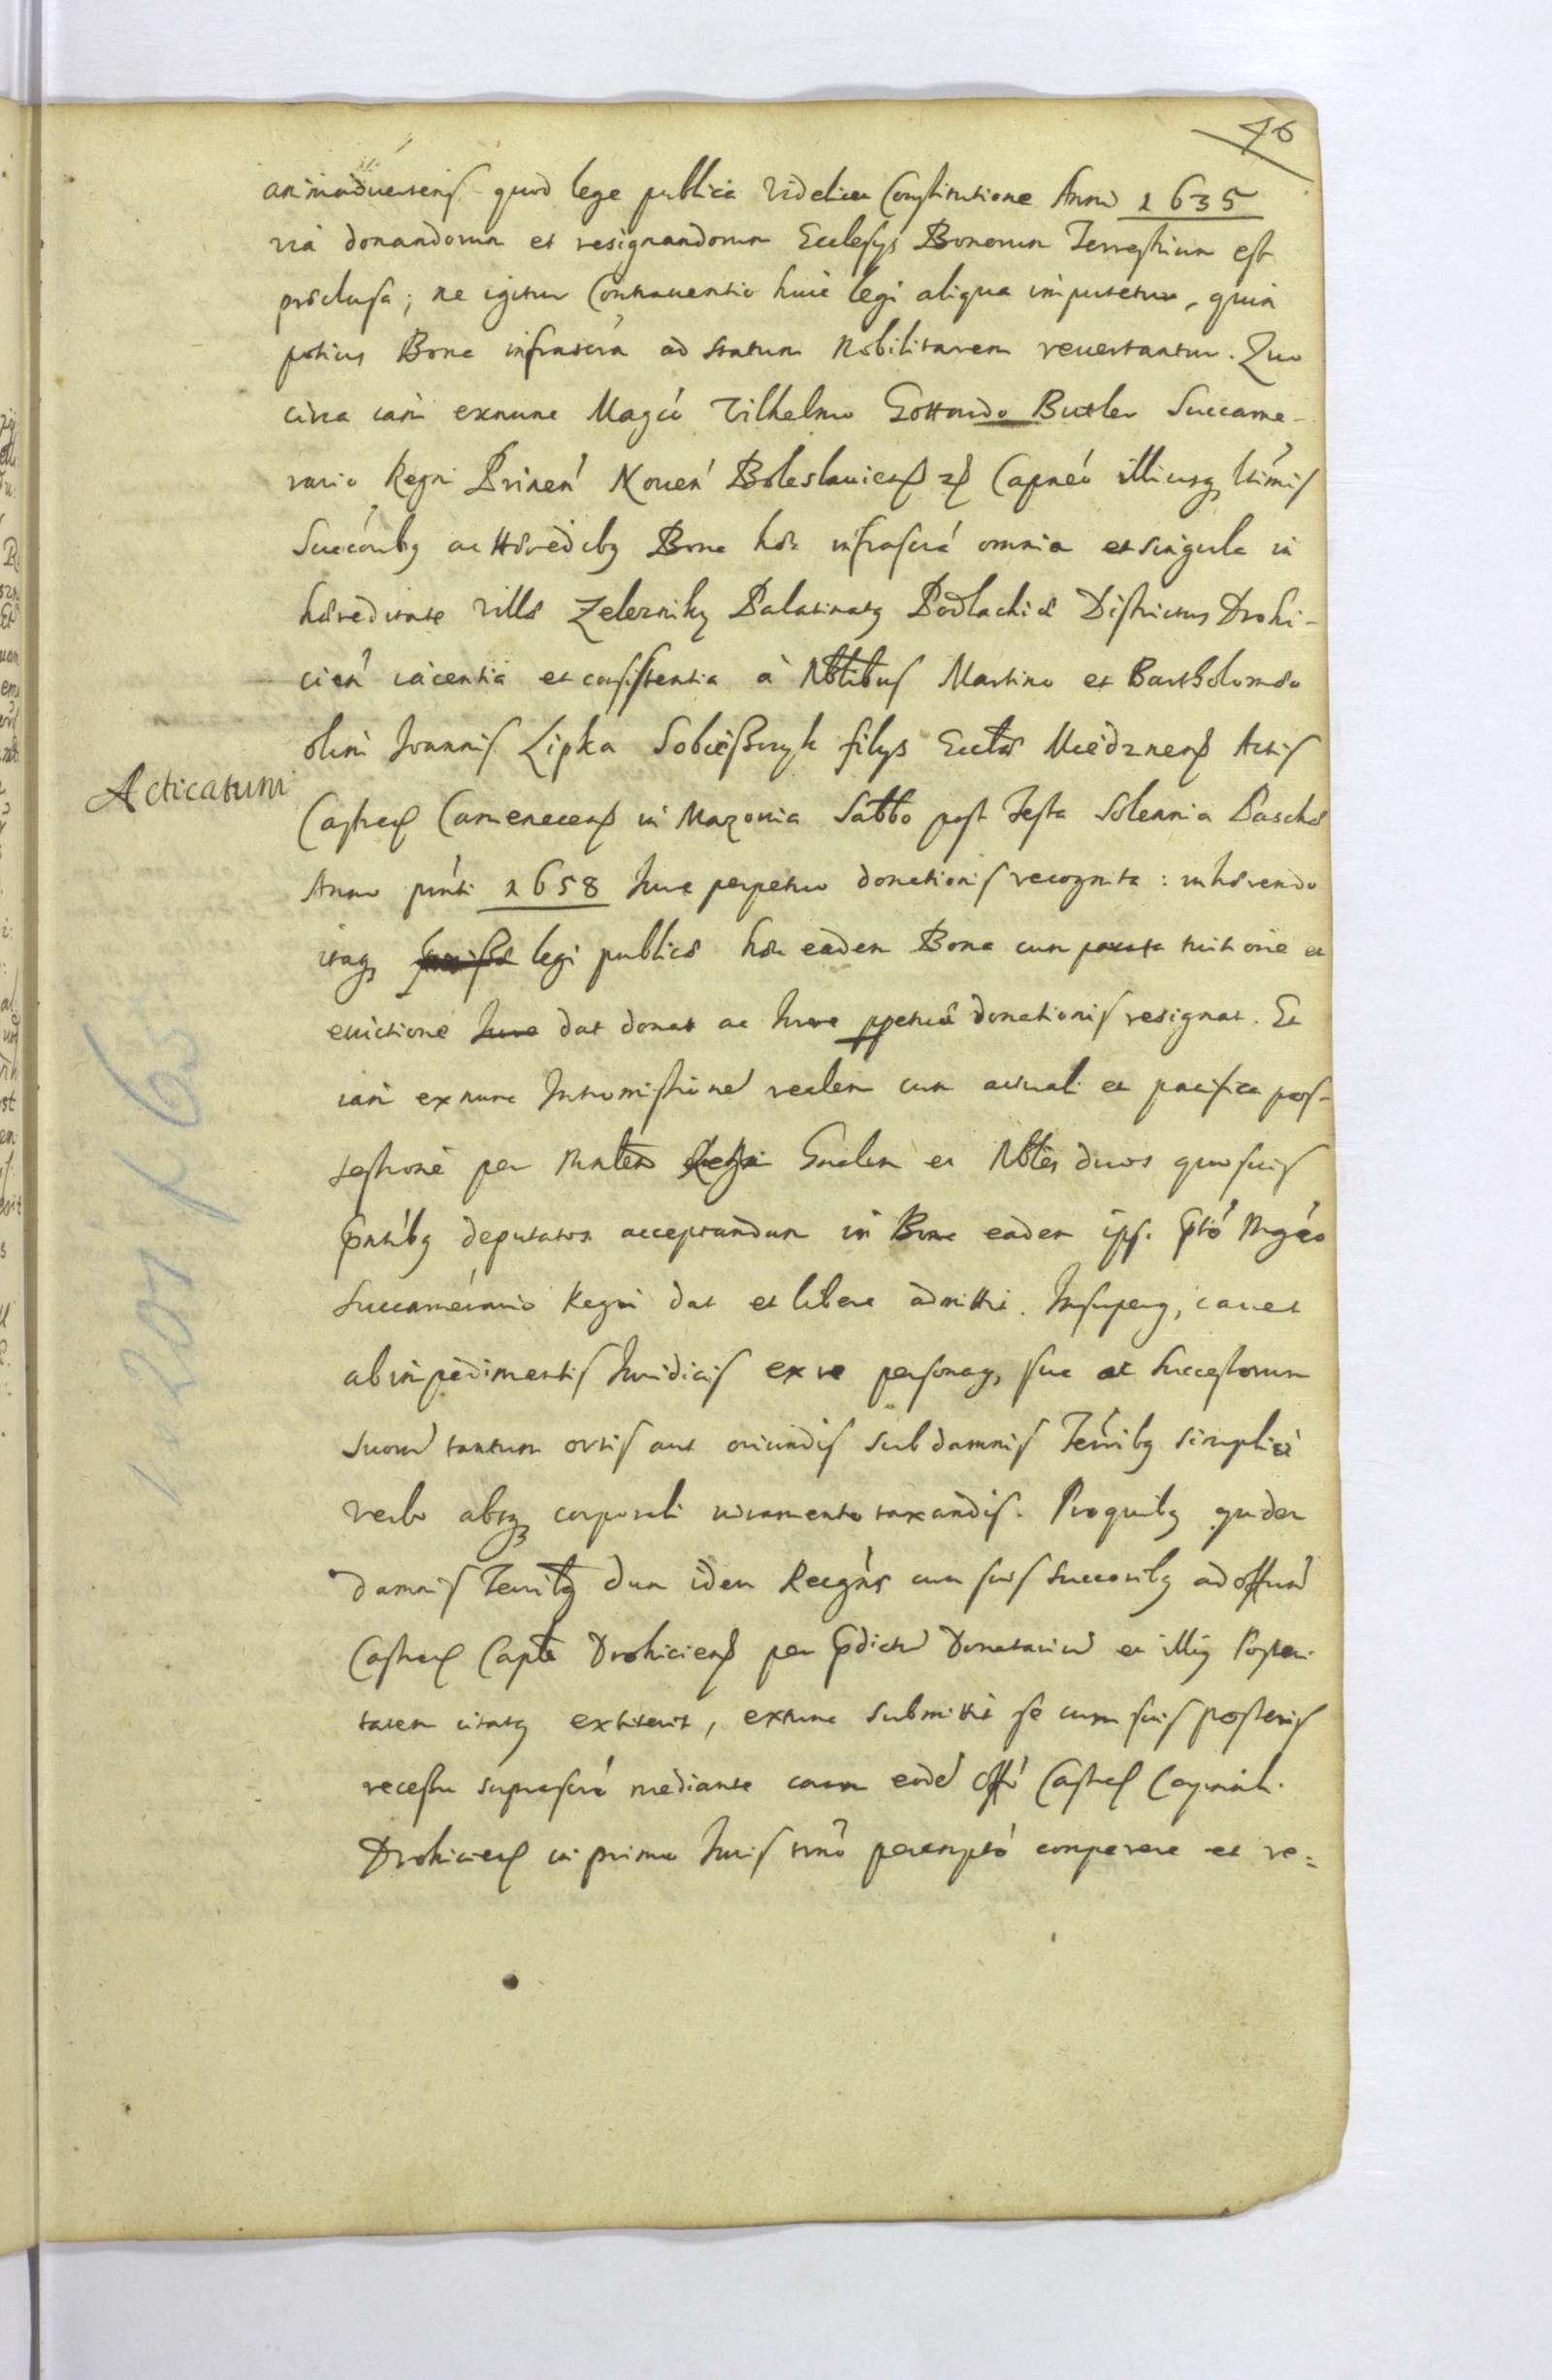 46
animaduertens quod lege publica videlicet Constitutione Anni 1635
via donandorum et resignandorum Ecclesijs Bonorum Terrestrium est
præclusa; ne igitur Contrauentio huic legi aliqua imputetur, quin
potius Bona infrascra ad statum Nobilitarem reuertantur. Quo
circa iam exnunc Magco Vilhelmo Gottardo Butler Succame-
rario Regni Prinen Nouen Boleslauicen Capneo illiusq ltimis
Succoribq ac Hæredibq Bona hæc infrascra omnia et singula in
hæreditate villæ Zelezniky Palatinatq Podlachiæ Districtus Drohi-
cien iacentia et consistentia à Nbtibus Martino et Bartholomæo
olim Joannis Lipka Sobieszczyk filijs Ecclæ Miedznens Actis
Acticatum
Castren Camenecens in Mazouia Sabbo post Festa Solennia Paschæ
Anno pnti 1658 Jure perpetuo donationis recognita: inhærendo
itaq legi publicæ hæc eadem Bona cum tuitione et
euictione Jure dat donat ac Jure ppetuæ donationis resignat. Et
iam exnunc Intromissione realem cum actuali et pacifica pos-
sessione per Mnlem Regni Gnalem et Nbles duos quosuis
pntibq deputatos acceptandam in Bona eadem ips. pto Mgco
Succamerario Regni dat et libere admittit. Insuperq, cauet
ab impedimentis Juridicis ex re personaq, sua ac Successorum
suorum tantum ortis aut oriundis sub damnis Terribq simplici
verbo absq corporali iuramento taxandis. Pro quibq quidem
damnis Terribq dum idem Recgns cum suis Succoribq ad offum
Castren Capta Drohiciens per pdictum Donatarium et illiq Posteri-
tatem citatq extiterit, extunc submittit se cum suis posteris
recessu suprascro mediante coram eode offo Castren Capnali
Drohicien in primo Juris tmo perempto comparere et re=
1 K 65